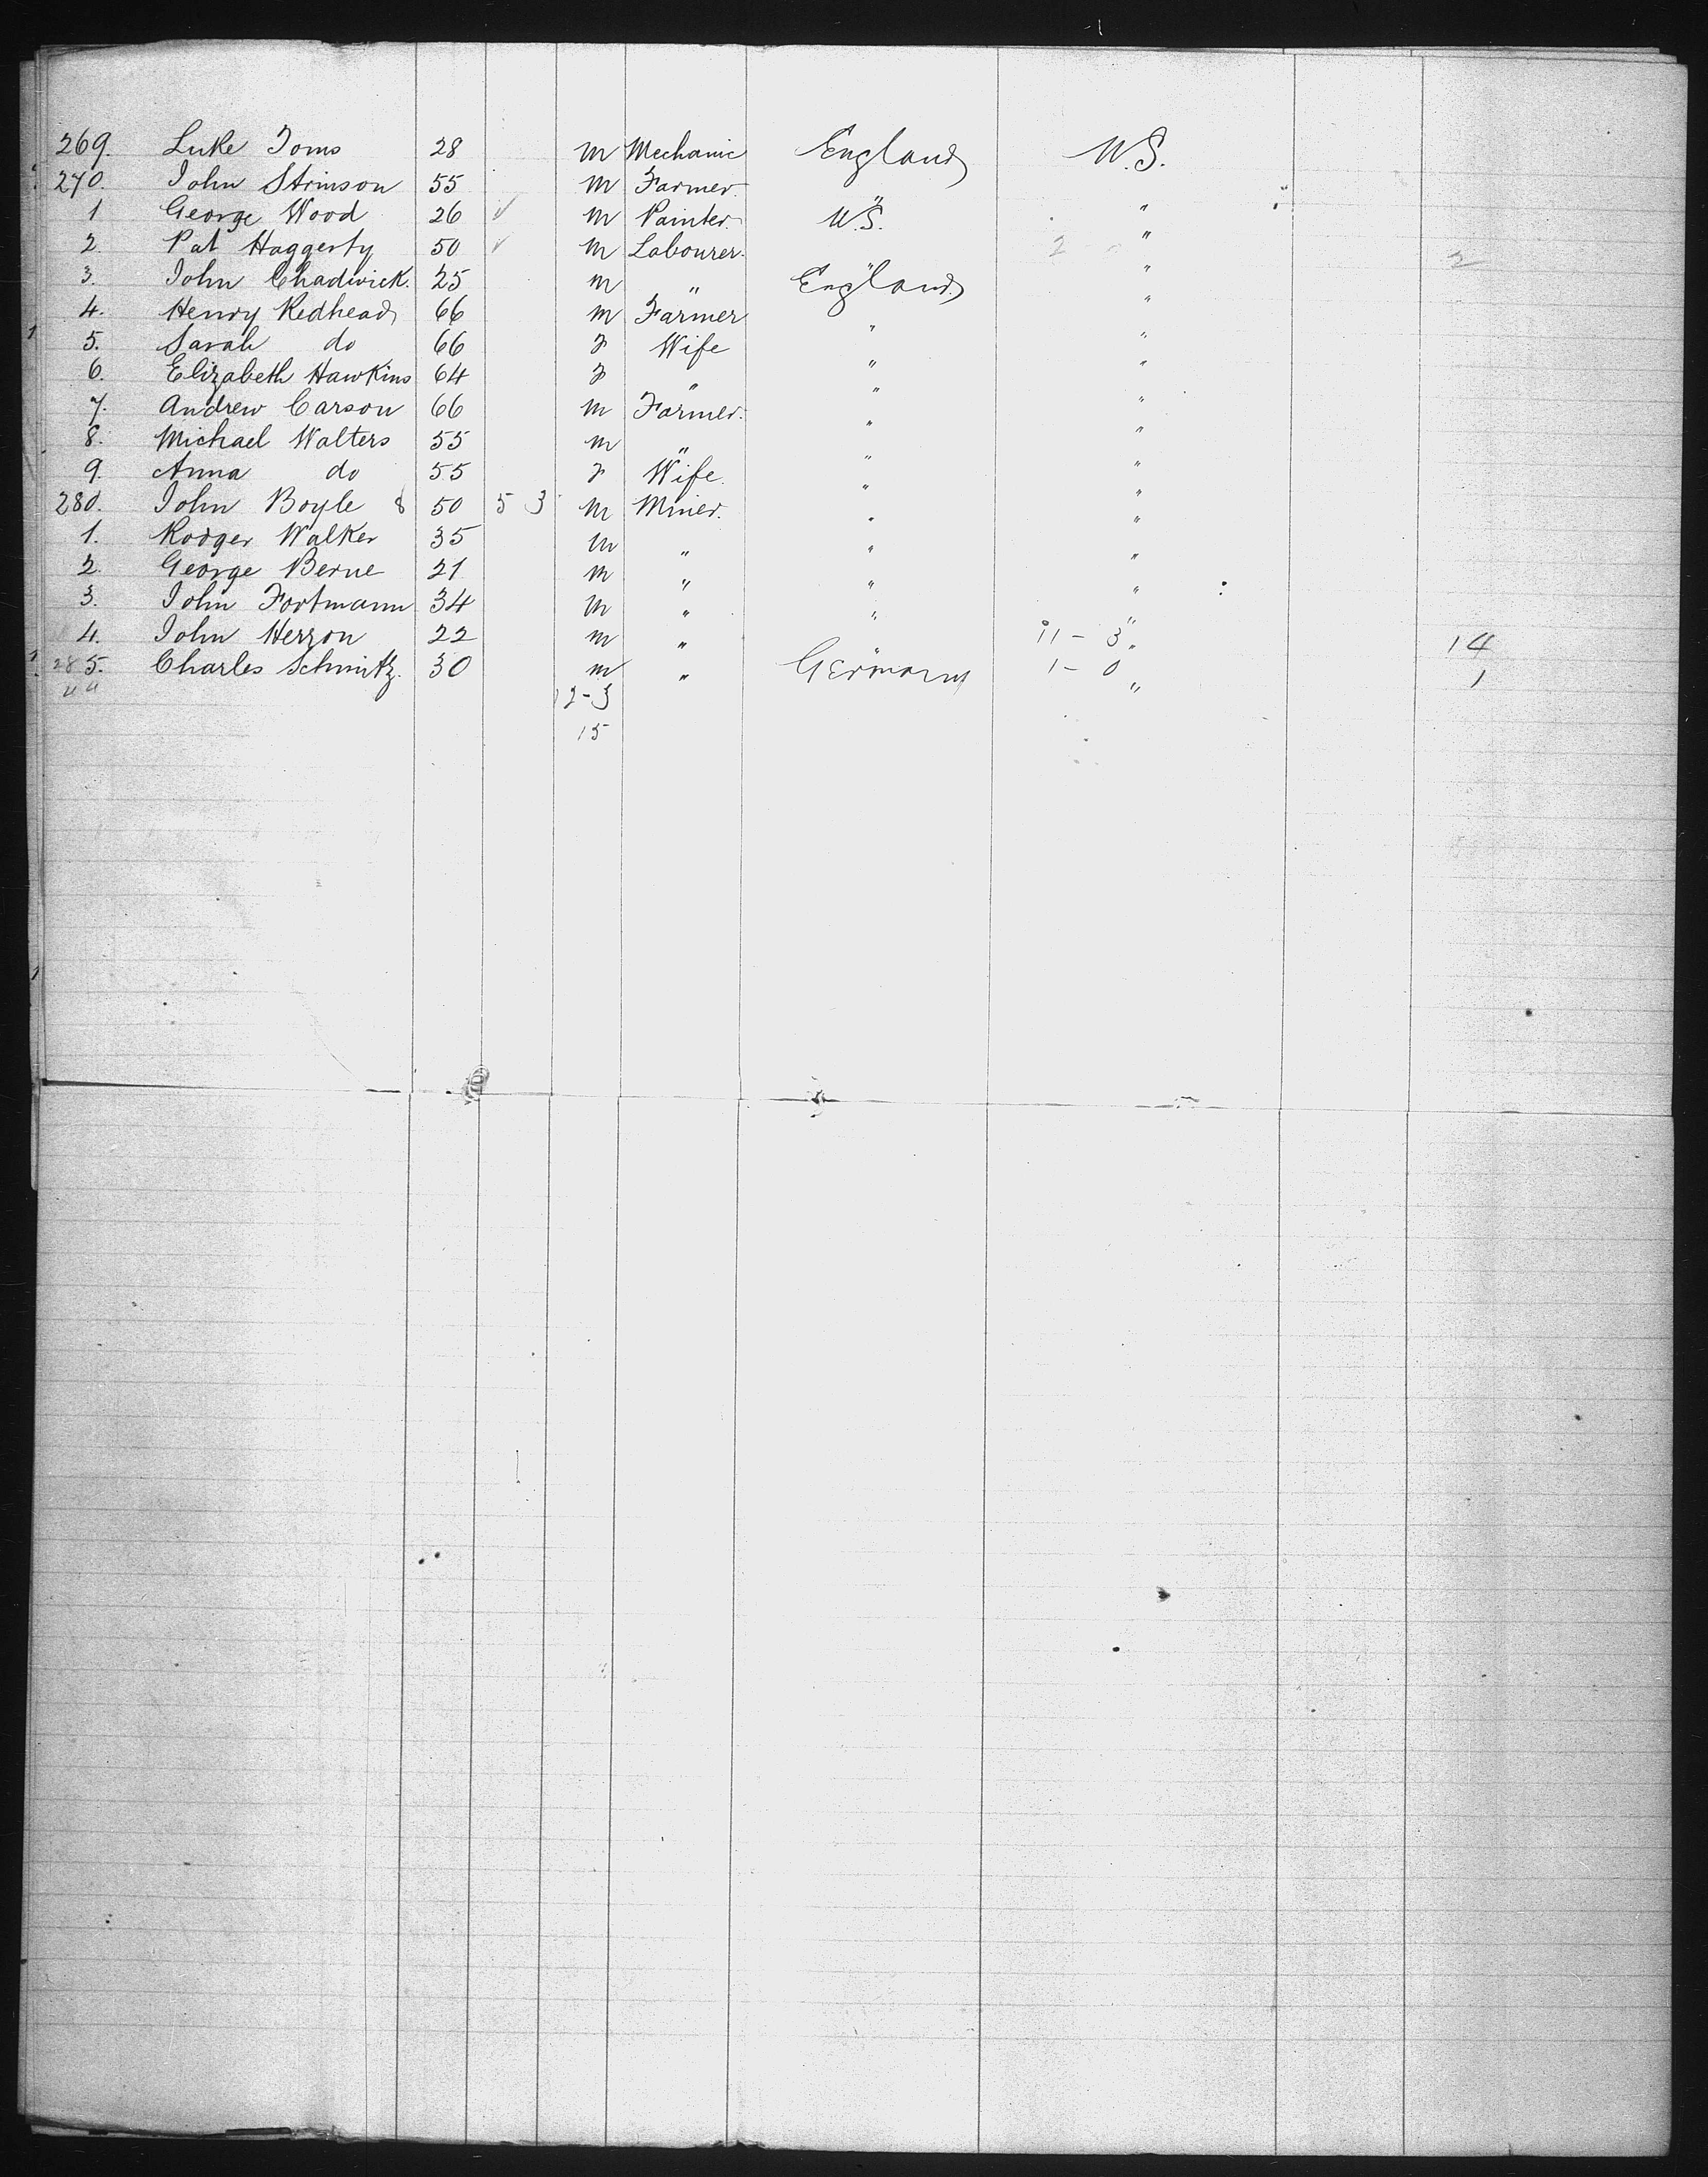 269. Luke Toms 28 m Mechanic England U.S.
270. John Strinson 55 m Farmer " "
1 George Wood 26 ✓ m Painter U.S. "
2. Pat Haggerty 50 ✓ m Labourer. " 2 " 2
3. John Chadwick. 25 m " England "
4. Henry Redhead 66 m Farmer " "
5. Sarah do 66 F Wife " "
6. Elizabeth Hawkins 64 F " " "
7. Andrew Carson 66 m Farmer. " "
8. Michael Walters 55 m " " "
9. Anna do 55 F Wife. " "
280. John Boyle 8 50 5 3 m Miner. " "
1. Rodger Walker 35 m " " "
2. George Berne 21 m " " "
3. John Fortmann 34 m " " "
4. John Herron 22 m " " 11 - 3 " 14
285. Charles Schmitz. 30 m " Germany 1 - 0 " 1
12-3
15